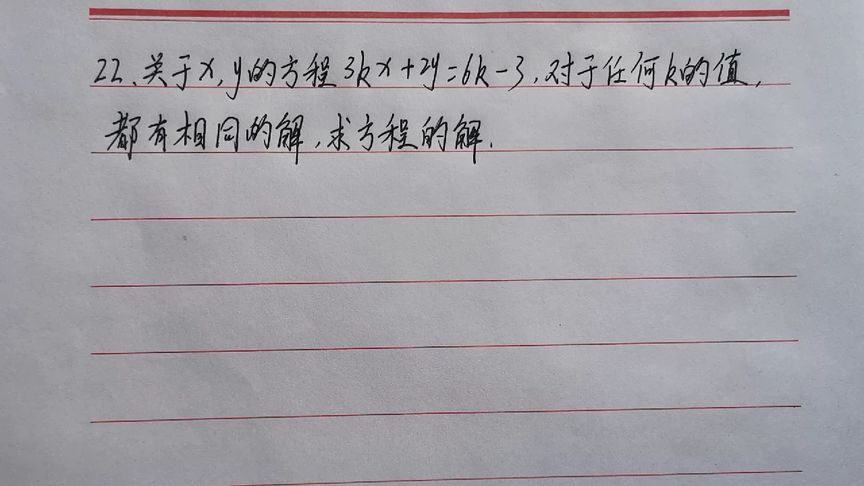 22、关于x,y的方程3kx+2y=6k-3,对于任何k的值,
都有相同的解,求方程的解.